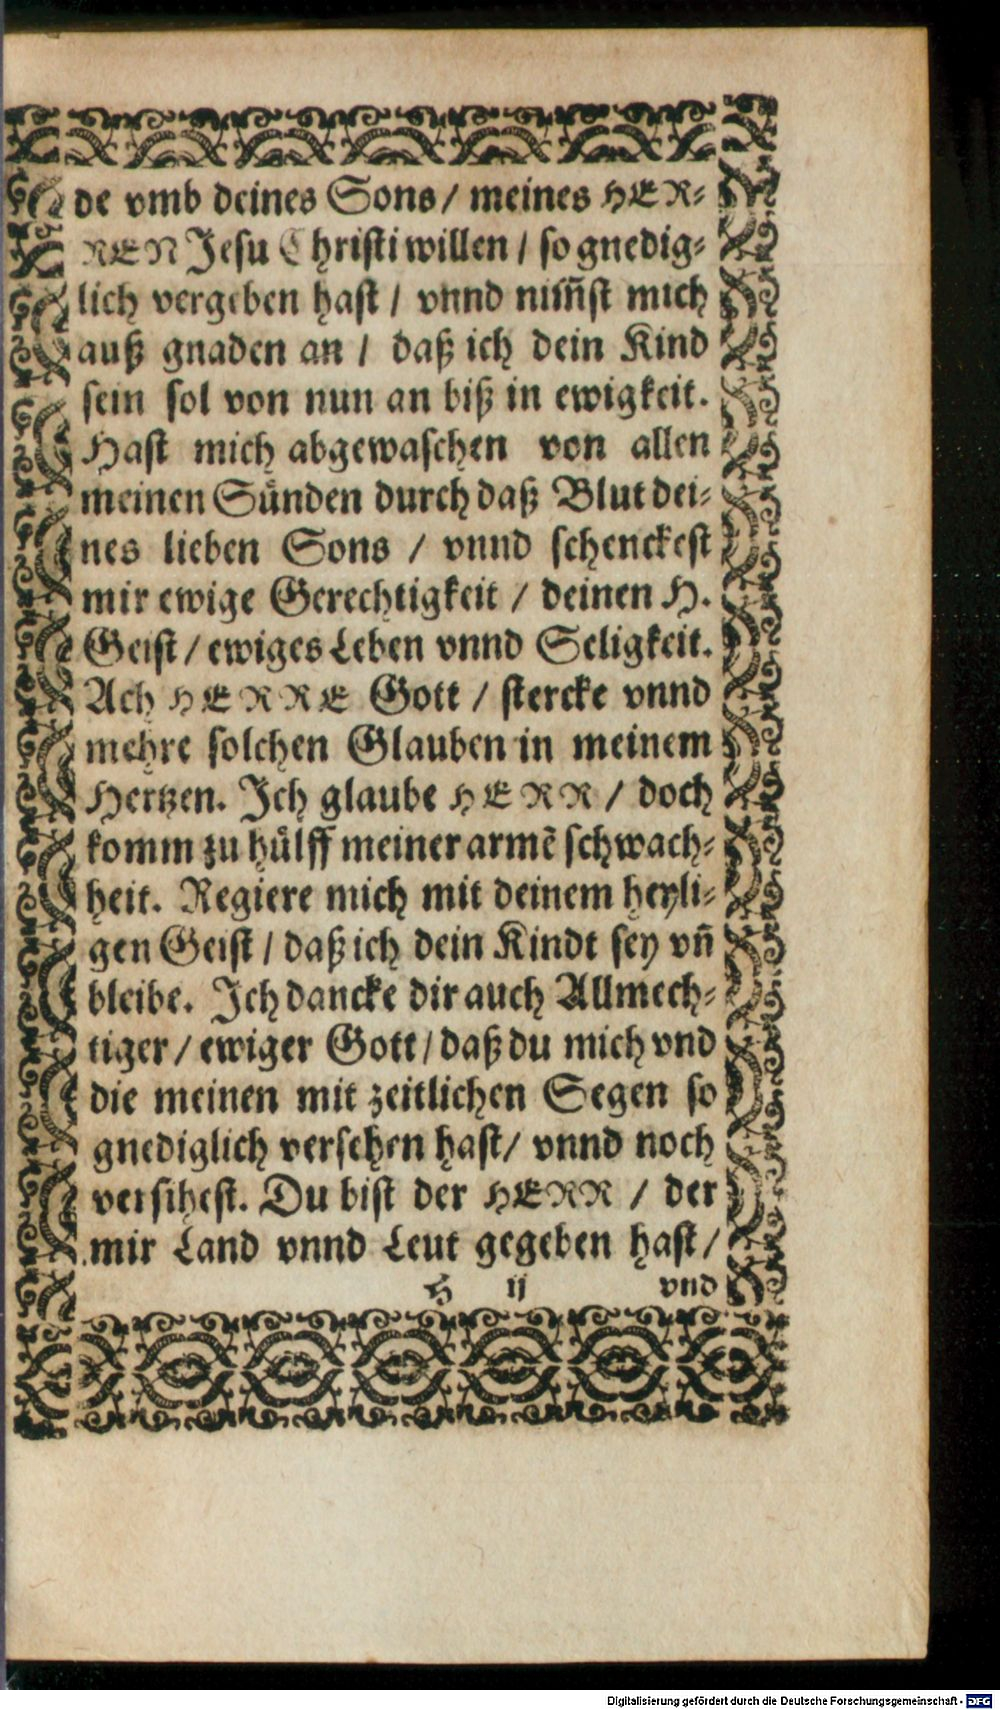 de vmb deines Sons / meines HER-
REN Jesu Christi willen / so gnedig-
lich vergeben hast / vnnd nim̃st mich
auß gnaden an / daß ich dein Kind
sein sol von nun an biß in ewigkeit.
Hast mich abgewaschen von allen
meinen Sünden durch daß Blut dei-
nes lieben Sons / vnnd schenckest
mir ewige Gerechtigkeit / deinen H.
Geist / ewiges Leben vnnd Seligkeit.
Ach HERRE Gott / stercke vnnd
mehre solchen Glauben in meinem
Hertzen. Ich glaube HERR / doch
komm zu hülff meiner armē schwach-
heit. Regiere mich mit deinem heyli-
gen Geist / daß ich dein Kindt sey vñ
bleibe. Ich dancke dir auch Allmech-
tiger / ewiger Gott / daß du mich vnd
die meinen mit zeitlichen Segen so
gnediglich versehen hast / vnnd noch
versihest. Du bist der HERR / der
mir Land vnnd Leut gegeben hast /
H ij vnd
Digitalisierung gefördert durch die Deutsche Forschungsgemeinschaft - DFG